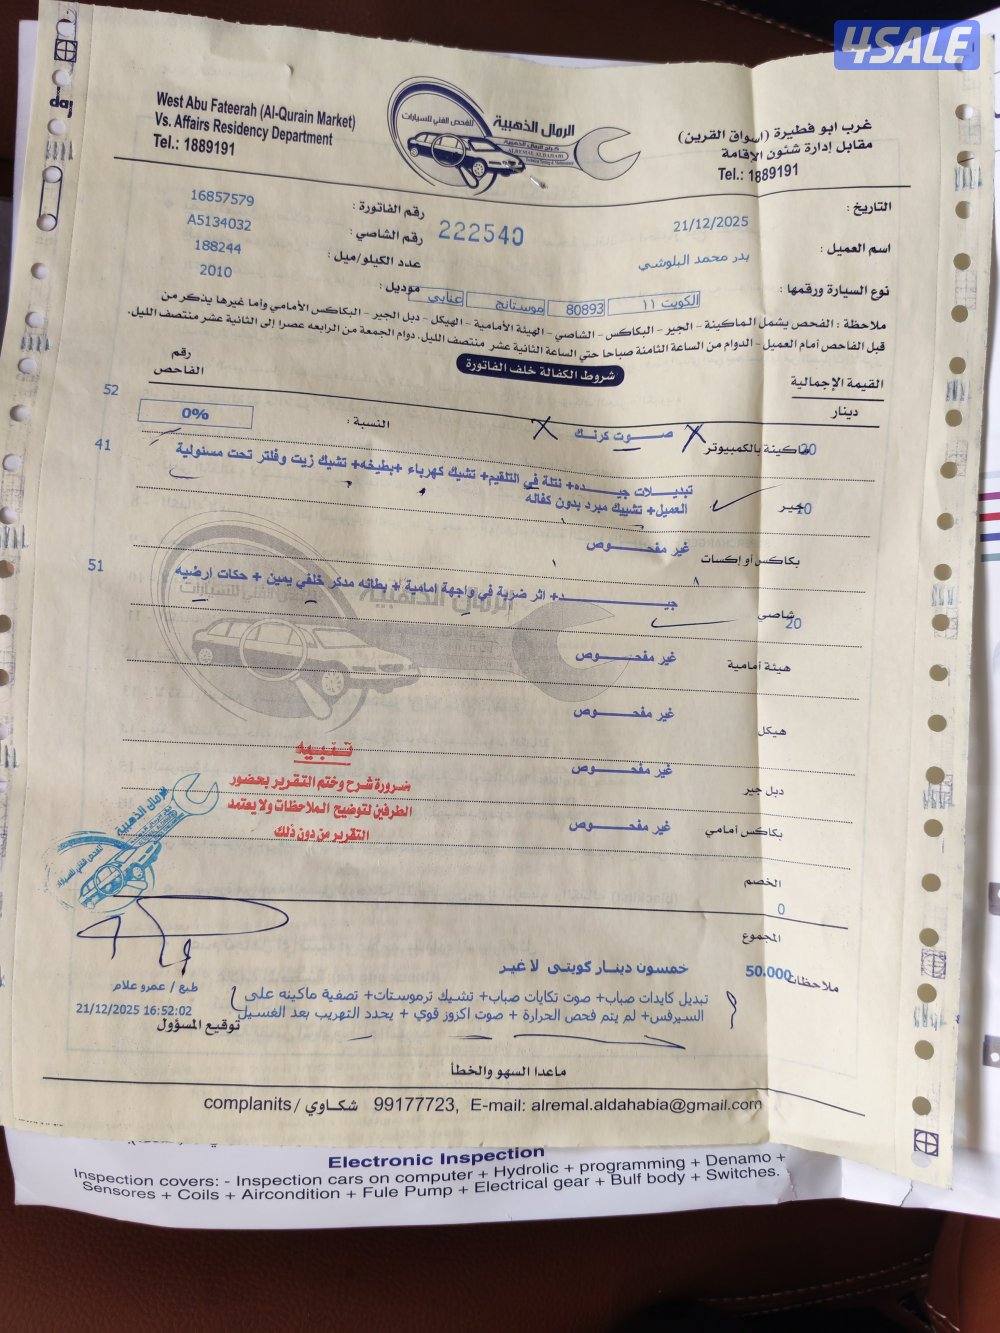 4SALE
West Abu Fateerah (Al-Qurain Market)
Vs. Affairs Residency Department
Tel.: 1889191
الرمال الذهبية
للفحص الفني للسيارات
كراج الرمال الذهبية
ALREMAL ALDAHABI
غرب ابو فطيرة (اسواق القرين)
مقابل إدارة شئون الإقامة
Tel.: 1889191
التاريخ : 21/12/2025
222540
رقم الفاتورة : 16857579
اسم العميل : بدر محمد البلوشي
رقم الشاصي : A5134032
عدد الكيلو/ميل : 188244
نوع السيارة ورقمها : الكويت ١١ 80893 موستانج عنابي
موديل : 2010
ملاحظة : الفحص يشمل الماكينة - الجير - البكاكس - الشاصي - الهيئة الأمامية - الهيكل - دبل الجير - البكاكس الأمامي وأما غيرها يذكر من
قبل الفاحص أمام العميل - الدوام من الساعة الثامنة صباحا حتى الساعة الثانية عشر منتصف الليل. دوام الجمعة من الرابعه عصرا إلى الثانية عشر منتصف الليل.
شروط الكفالة خلف الفاتورة
القيمة الإجمالية
دينار
رقم
الفاحص
20 ماكينة بالكمبيوتر X صــوت كرنـك X النسبة : 0% 52
10 جير تبديــلات جيـــده+ نتلة في التلقيم+ تشيك كهرباء +بطيخه+ تشيك زيت وفلتر تحت مسئولية 41
العميل+ تشييك مبرد بدون كفالة
بكاكس أو إكسات غير مفحــوص
20 شاصي جيـــد+ اثر ضربة في واجهة امامية + بطانه مدكر خلفي يمين + حكات ارضيه 51
هيئة أمامية غير مفحــوص
هيكل غير مفحــوص
دبل جير غير مفحــوص
بكاكس أمامي غير مفحــوص
تنبيه
ضرورة شرح وختم التقرير بحضور
الطرفين لتوضيح الملاحظات ولا يعتمد
التقرير من دون ذلك
الرمال الذهبية
للفحص الفني للسيارات
الخصم
0
المجموع
50.000 خمسون دينار كويتى لا غير
ملاحظات تبديل كايدات صباب+ صوت تكايات صباب+ تشيك ترموستات+ تصفية ماكينه على
السيرفس+ لم يتم فحص الحرارة + صوت اكزوز قوي + يحدد التهريب بعد الغسيل
طبع / عمرو علام
21/12/2025 16:52:02
توقيع المسؤول
ماعدا السهو والخطأ
complanits / شكاوي 99177723, E-mail: alremal.aldahabia@gmail.com
Electronic Inspection
Inspection covers: - Inspection cars on computer + Hydrolic + programming + Denamo +
Sensores + Coils + Aircondition + Fule Pump + Electrical gear + Bulf body + Switches.